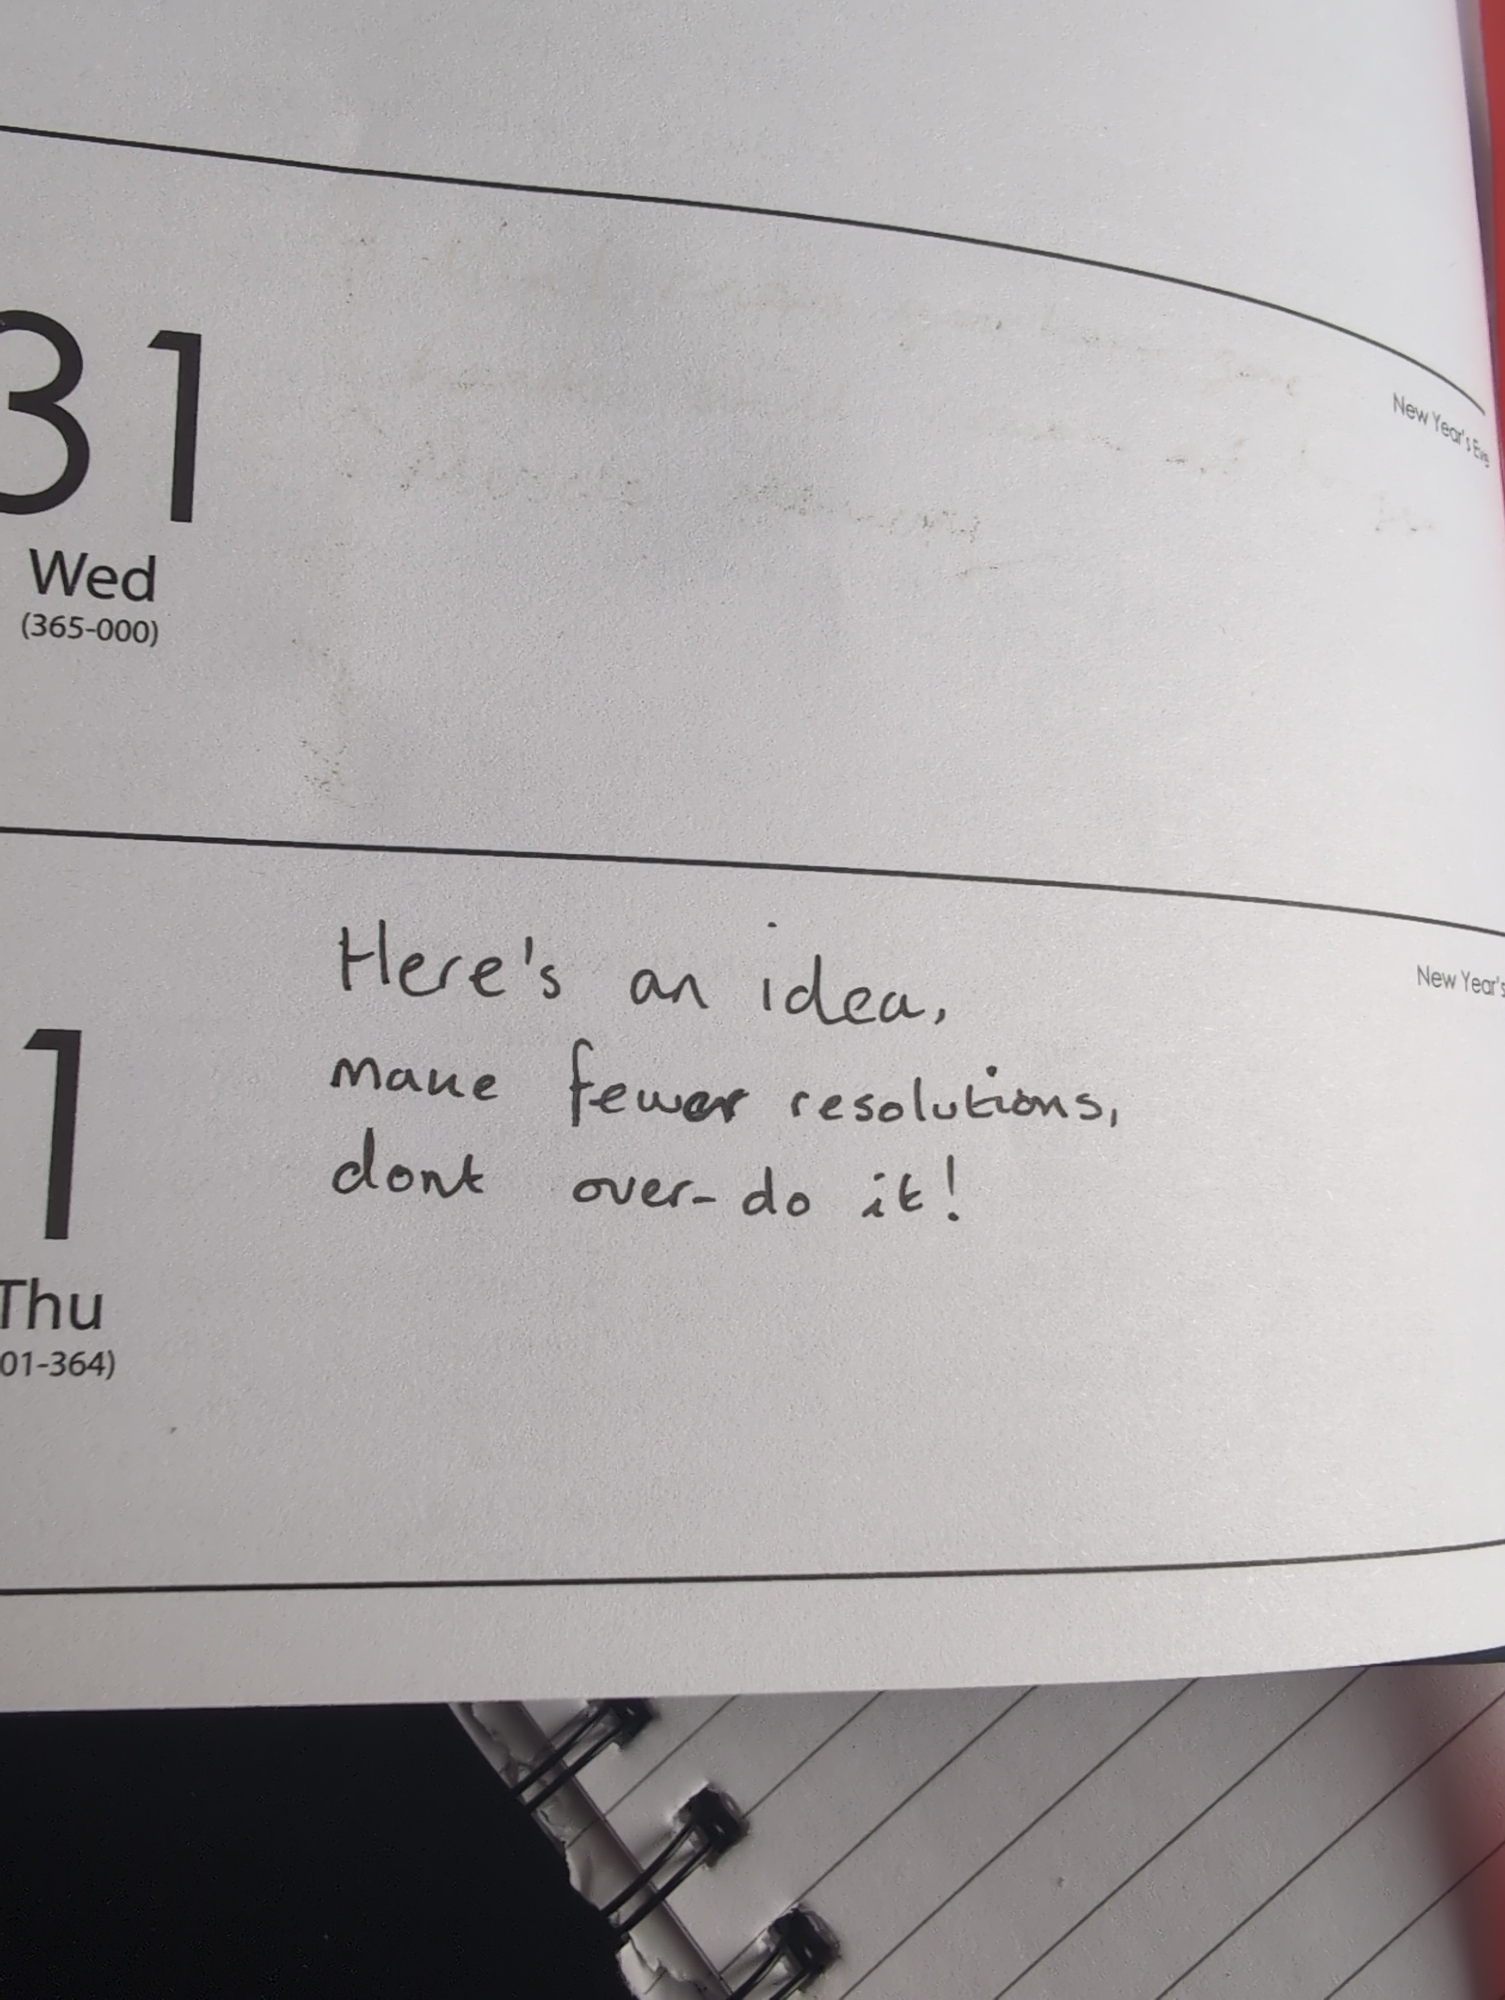 31
New Year's Eve
Wed
(365-000)
New Year's
Here's an idea,
make fewer resolutions,
dont over-do it!
1
Thu
01-364)